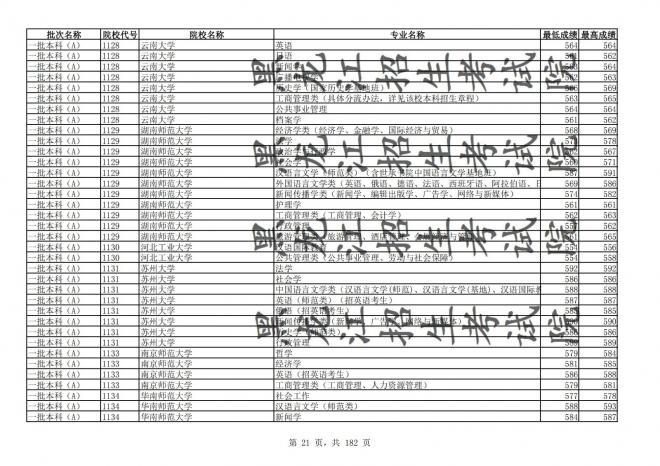 批次名称 院校代号 院校名称 专业名称 最低成绩 最高成绩
一批本科（A） 1128 云南大学 英语 564 564
一批本科（A） 1128 云南大学 日语 562
一批本科（A） 1128 云南大学 新闻学 564
一批本科（A） 1128 云南大学 广播电视学 563
一批本科（A） 1128 云南大学 历史学（国家历史学基地班） 562
一批本科（A） 1128 云南大学 工商管理类（具体分流办法，详见该校本科招生章程） 563 565
一批本科（A） 1128 云南大学 公共事业管理 564
一批本科（A） 1128 云南大学 档案学 561
一批本科（A） 1129 湖南师范大学 经济学类（经济学、金融学、国际经济与贸易） 568 569
一批本科（A） 1129 湖南师范大学 法学 578
一批本科（A） 1129 湖南师范大学 567
一批本科（A） 1129 湖南师范大学 社会学 571
一批本科（A） 1129 湖南师范大学 汉语言文学（师范类）（含世承书院中国语言文学基地班） 587 591
一批本科（A） 1129 湖南师范大学 外国语言文学类（英语、俄语、德语、法语、西班牙语、阿拉伯语、 569 586
一批本科（A） 1129 湖南师范大学 新闻传播学类（新闻学、编辑出版学、广告学、网络与新媒体） 564 574
一批本科（A） 1129 湖南师范大学 护理学 561 561
一批本科（A） 1129 湖南师范大学 工商管理类（工商管理、会计学） 562
一批本科（A） 1129 湖南师范大学 行政管理 563
一批本科（A） 1129 湖南师范大学 565
一批本科（A） 1130 河北工业大学 汉语国际教育 554
一批本科（A） 1130 河北工业大学 公共管理类（公共事业管理、劳动与社会保障） 554 558
一批本科（A） 1131 苏州大学 法学 592 592
一批本科（A） 1131 苏州大学 社会学 586 586
一批本科（A） 1131 苏州大学 中国语言文学类（汉语言文学(师范)、汉语言文学(基地)、汉语国际 588 588
一批本科（A） 1131 苏州大学 英语（师范类）（招英语考生） 587 587
一批本科（A） 1131 苏州大学 俄语（招英语考生） 585
一批本科（A） 1131 苏州大学 新闻传播学类（新闻学、广告学、网络与新媒体） 590
一批本科（A） 1131 苏州大学 历史学（师范） 587
一批本科（A） 1131 苏州大学 行政管理 589 589
一批本科（A） 1133 南京师范大学 哲学 579 584
一批本科（A） 1133 南京师范大学 经济学 581 585
一批本科（A） 1133 南京师范大学 英语（招英语考生） 586 588
一批本科（A） 1133 南京师范大学 工商管理类（工商管理、人力资源管理） 579 582
一批本科（A） 1134 华南师范大学 社会工作 577 578
一批本科（A） 1134 华南师范大学 汉语言文学（师范类） 588 593
一批本科（A） 1134 华南师范大学 新闻学 584 587
黑龙江招生考试院
黑龙江招生考试院
黑龙江招生考试院
黑龙江招生考试院
第 21 页，共 182 页